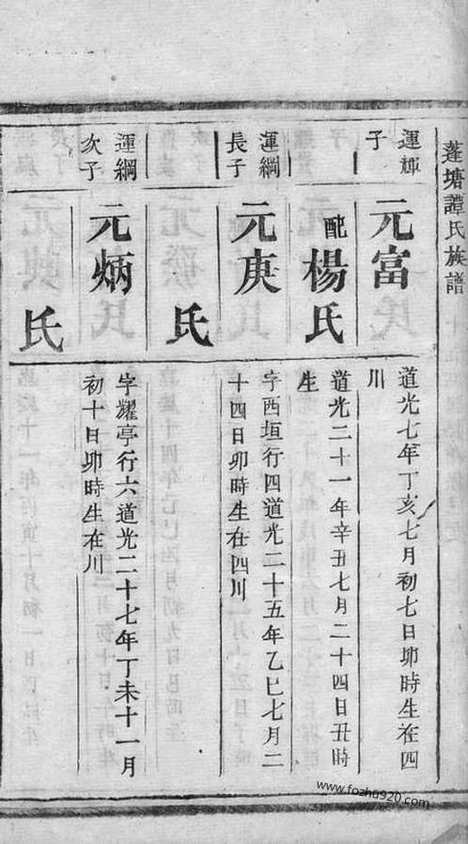 蓬塘譚氏族譜
運輝
子
元富
道光七年丁亥七月初七日卯時生在四
川
配楊氏
道光二十一年辛丑七月二十四日丑時
生
運綱
長子
元庚
字西垣行四道光二十五年乙巳七月二
十四日卯時生在四川
氏
運綱
次子
元炳
字耀亭行六道光二十七年丁未十一月
初十日卯時生在川
氏
www.fozhu920.com